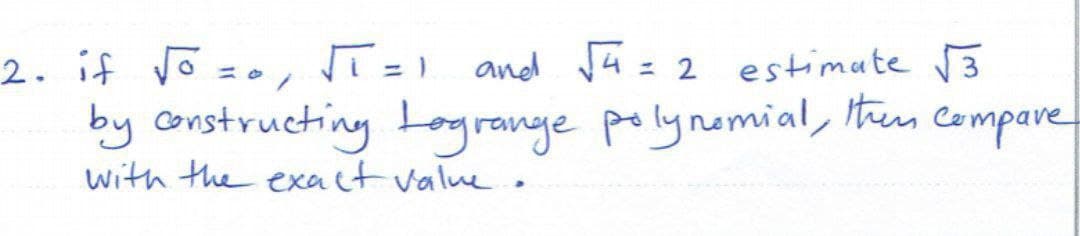 2. if √0 = 0, √1 = 1 and √4 = 2 estimate √3
by constructing Lagrange polynomial, then compare
with the exact value.